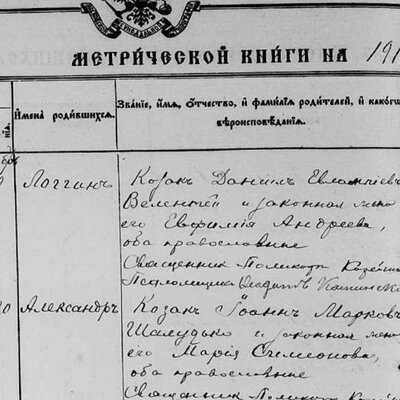 МЕТРИ́ЧЕСКОЙ КНИ́ГИ НА 191
И҆мена̀ роди́вшихсѧ.
Зва́нїе, и҆́мѧ, ѻ҆́тчество, и҆ фами́лїѧ роди́телей, и҆ како́гѡ
вѣроисповѣ́данїѧ.
Логгинъ
Козакъ Данiилъ Евлампiев
Велентей и законная жена
его Евфимiя Андреева,
оба православные
Священник Поликарп
Псаломщик
Александръ
Козакъ Iоаннъ Марковъ
Шалудько и законная жен
его Марiя Симеонова,
оба православные
Священник Поликарп